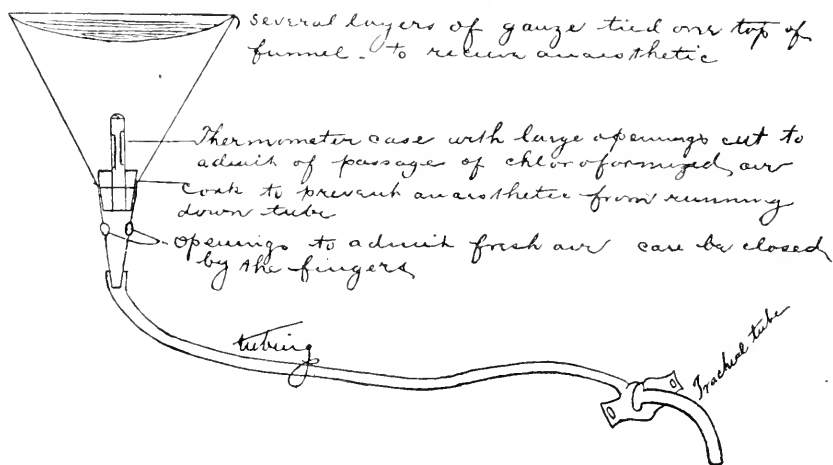 Several layers of gauze tied over top of
funnel - to receive anaesthetic
Thermometer case with large openings cut to
admit of passage of chloroformized air
Cork to prevent anaesthetic from running
down tube
openings to admit fresh air can be closed
by the fingers
tubing
Tracheal tube